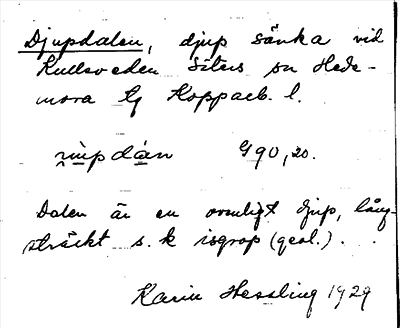 Djupdalen, djup sänka vid
Kullsveden Säters sn Hede-
mora tg Kopparb. l.
G 90, 20.
Dalen är en ovanligt djup, lång-
sträckt s. k isgrop (geol.).
Karin Hessling 1929